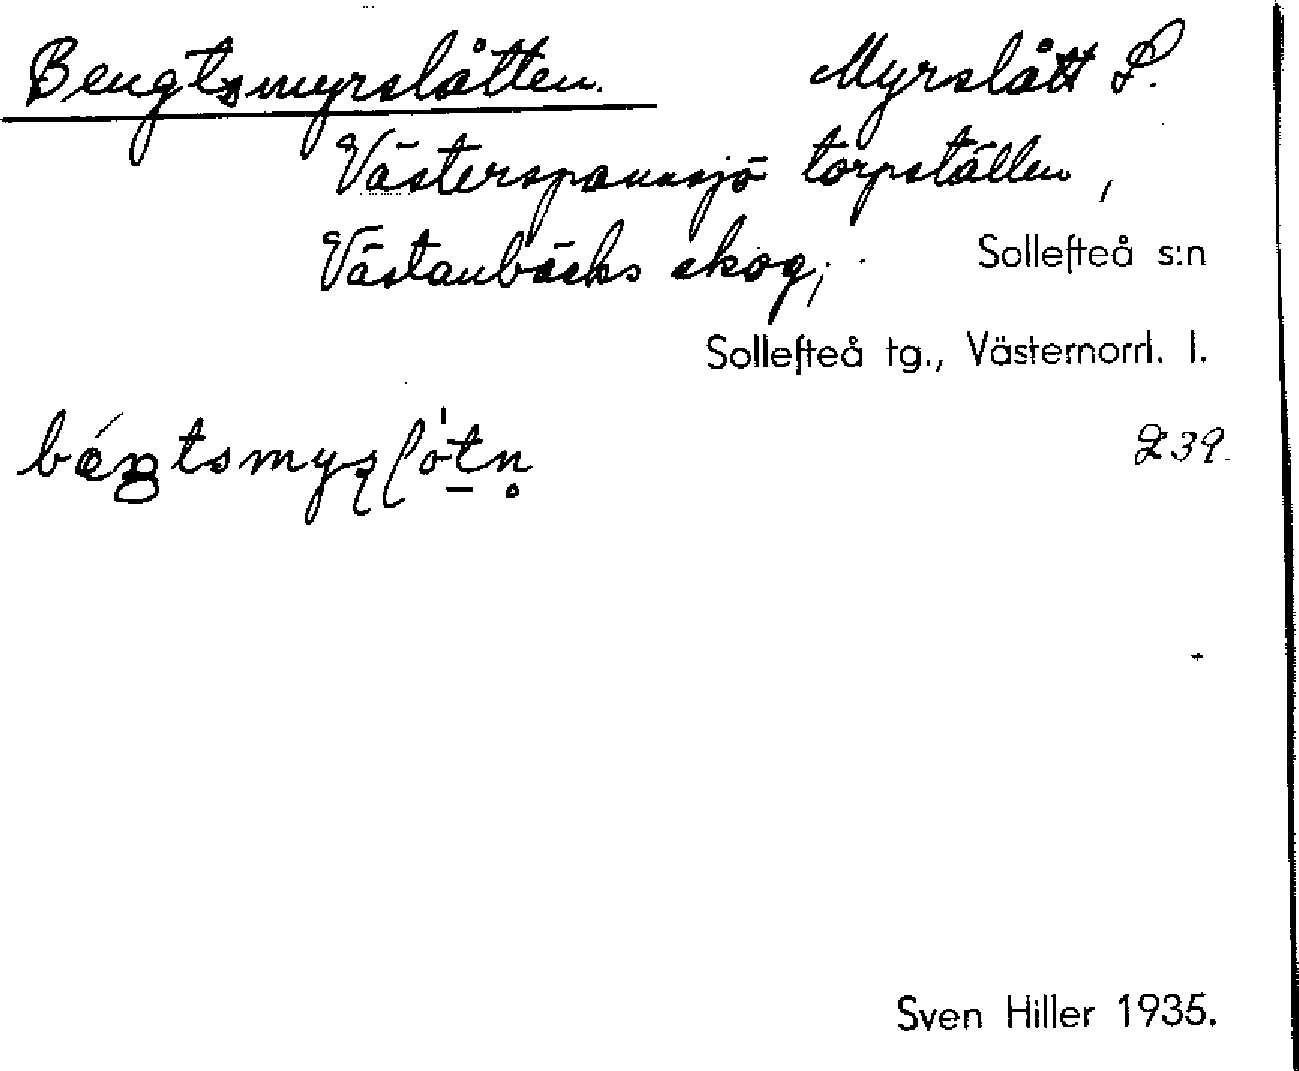 Bengtsmyrslåtten. Myrslått S.
Västerspannsjö torpställen,
Västanbäcks skog, Sollefteå s:n
Sollefteå tg., Västernorrl. l.
239.
Sven Hiller 1935.